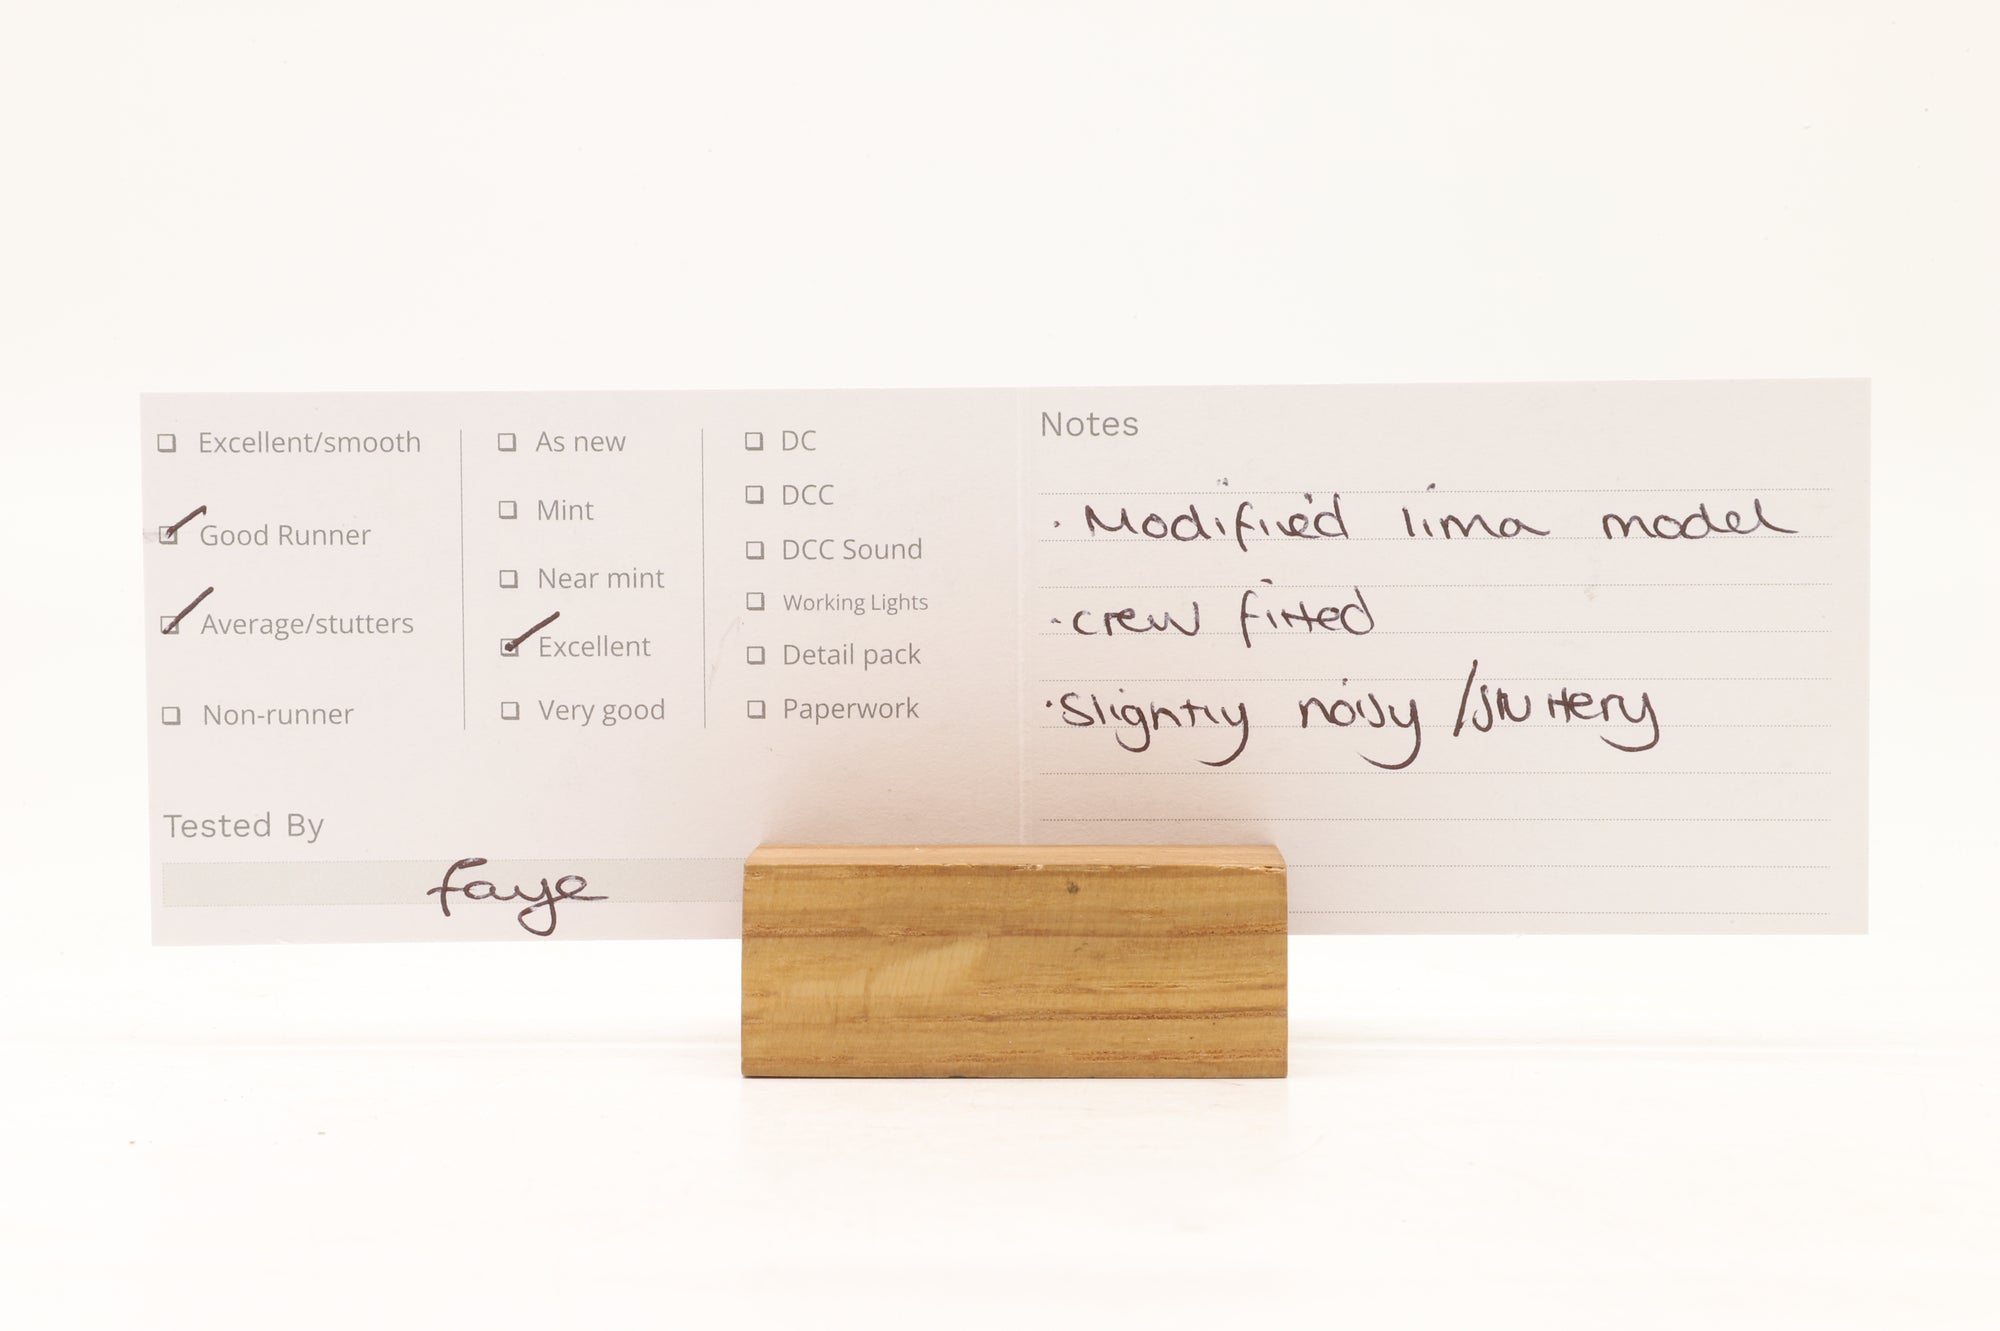 Excellent/smooth
Good Runner
Average/stutters
Non-runner
As new
Mint
Near mint
Excellent
Very good
DC
DCC
DCC Sound
Working Lights
Detail pack
Paperwork
Tested By
faye
Notes
· Modified lima model
· crew fitted
· Slightly noisy /stuttery